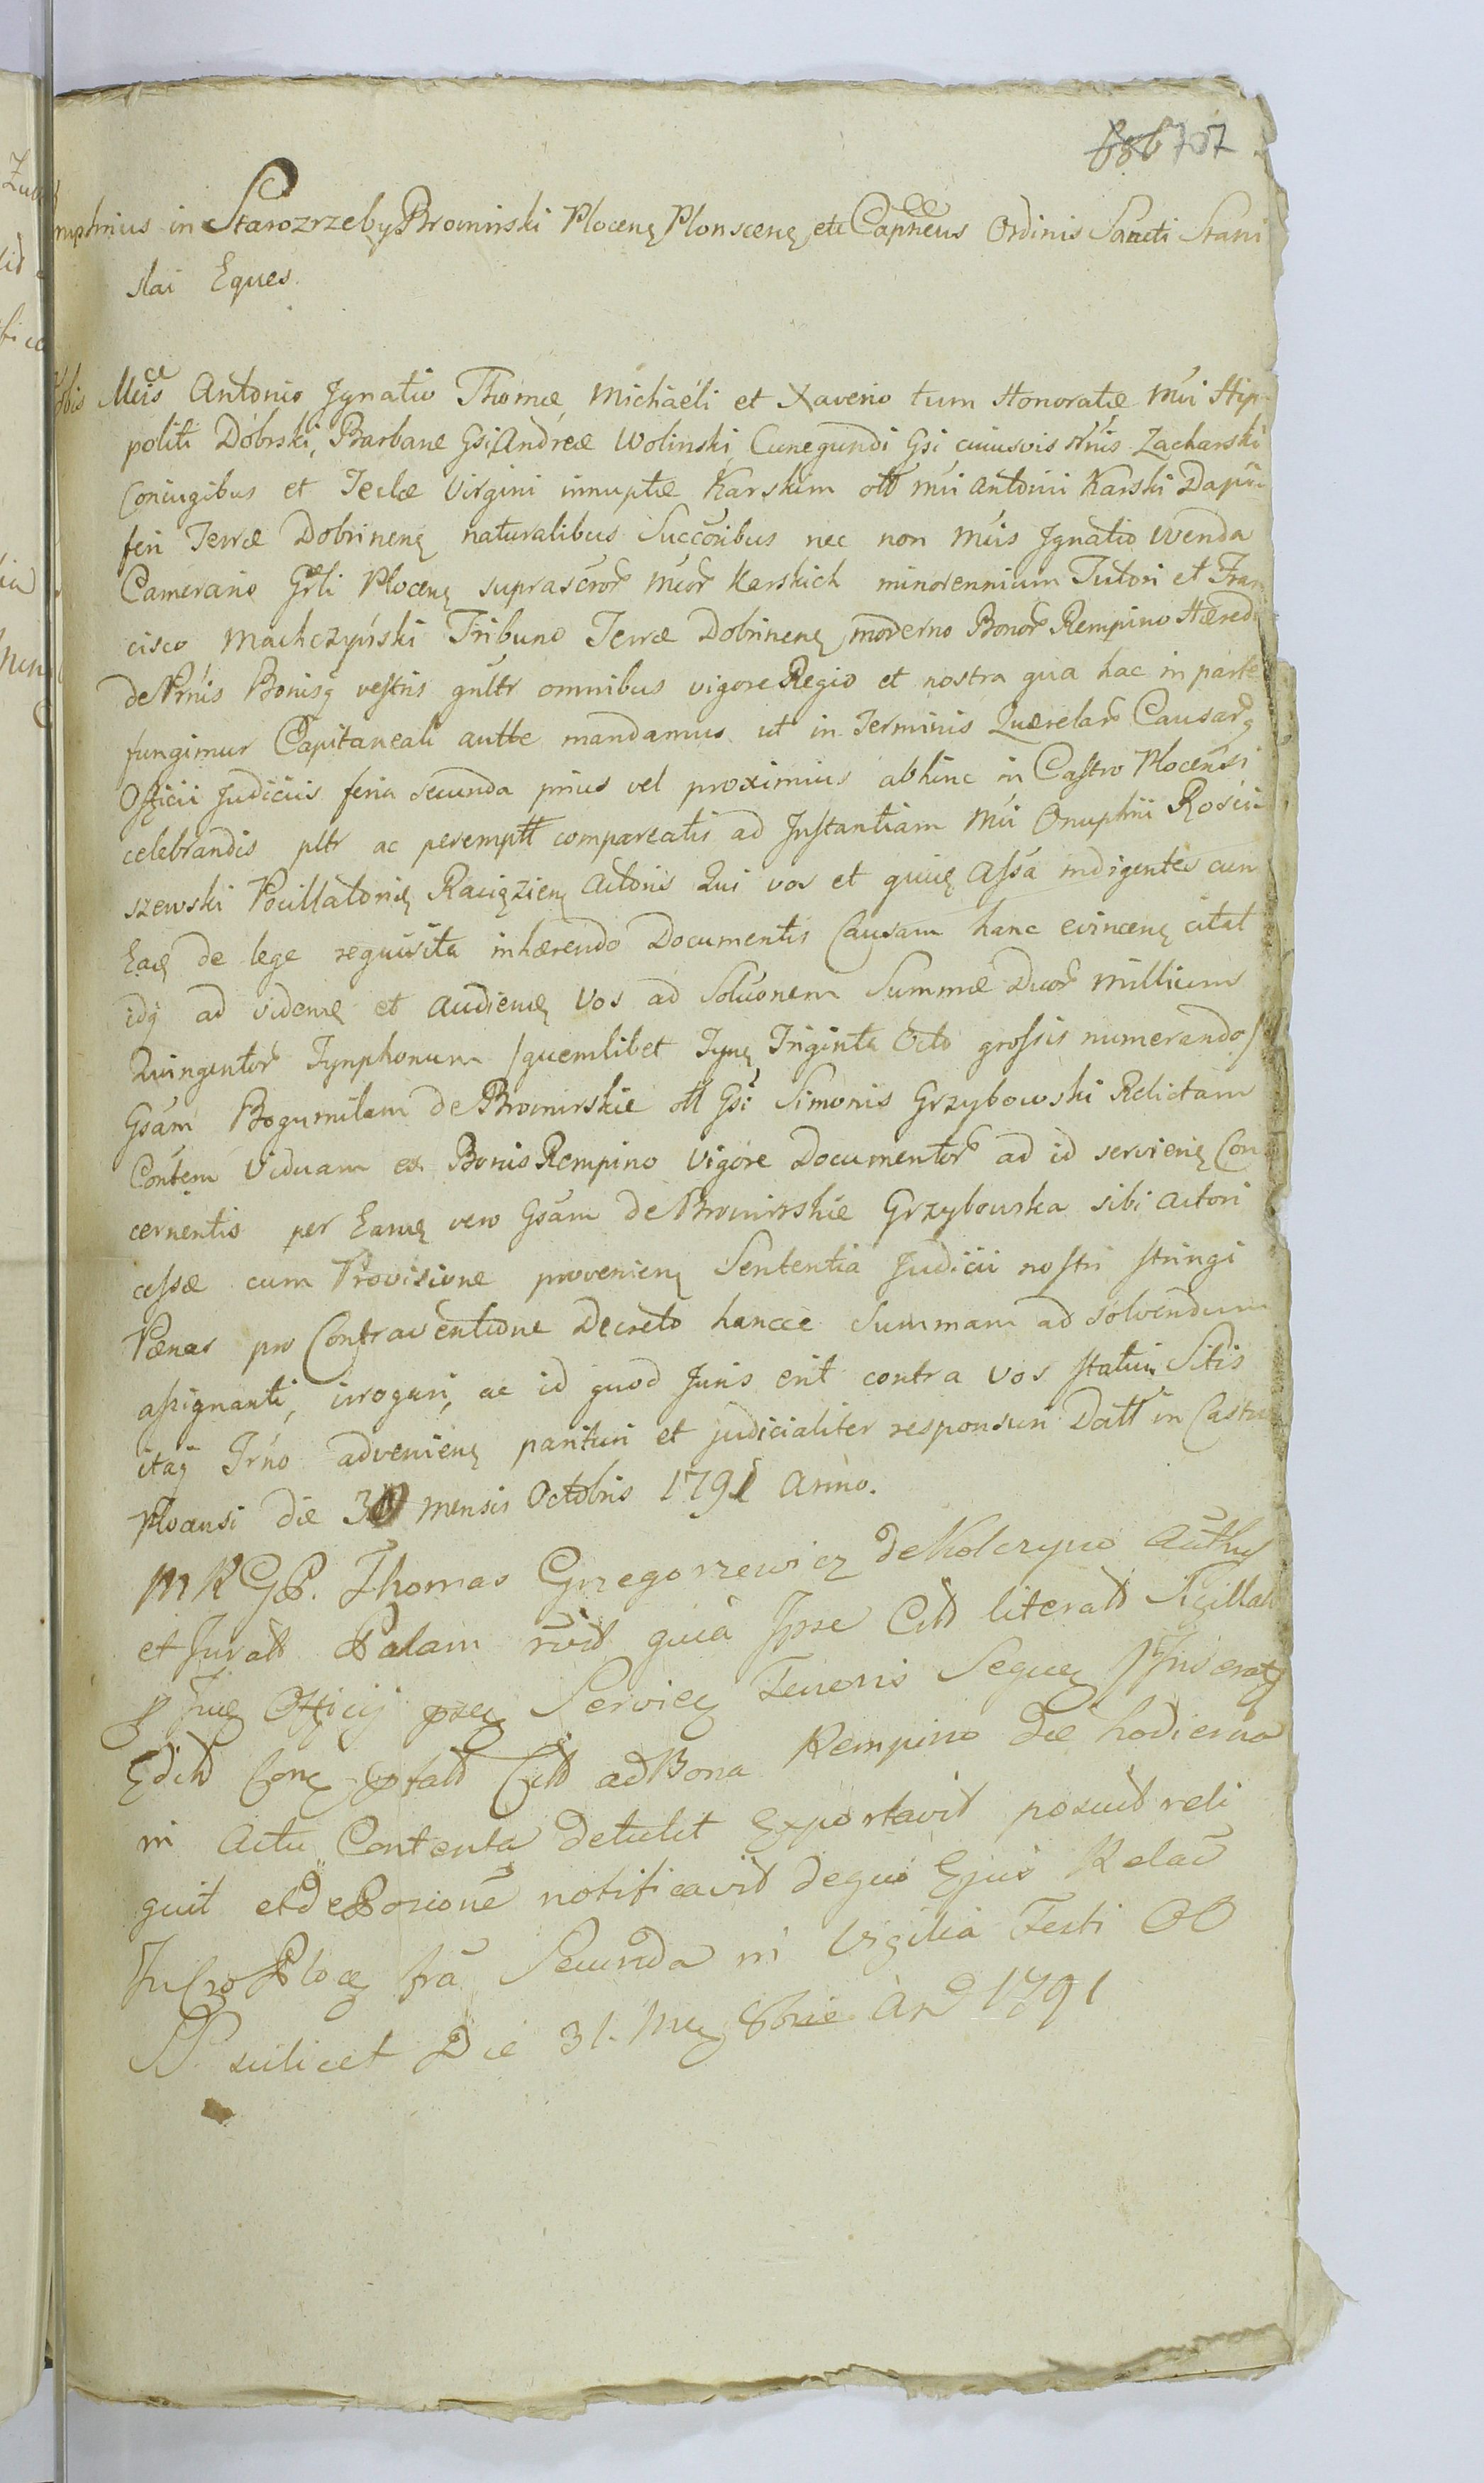 707
in Starozrzeby Bromirski Plocenę Plonscenę etc Capneus Ordinis Sancti Stani
slai Eques.
Mcis Antonio Ignatio Thomæ, Michaéli et Xaverio tum Honoratæ Mci Hip-
politi Dobrski, Barbaræ Gsi Andreæ Wolinski, Cunegundi Gsi cuiusvis Nnis Zacharski
Coniugibus et Teclæ Virgini innuptæ Karskim olt Mci Antonii Karski Dapi
feri Terræ Dobrinenę naturalibus Succoribus nec non Mcis Ignatio Wenda
Camerario Grli Plocenę suprascror Mcor Karskich minorennium Tutori et Fran
cisco Machczyński Tribuno Terræ Dobrinenę moderno Bonor Rempino Hæredi
de Prnis Bonisq vestris gnltr omnibus vigore Regio et nostra qua hac in parte
fungimur Capitaneali autte mandamus ut in Terminis Quærelar Causarq
Officii Judiciis feria secunda prius vel proximius abhinc in Castro Plocensi
celebrandis pltr ac peremptt compareatis ad Instantiam Mci Onuphrii Rosci
szewski Pocillatoris Raciązienę Actoris Qui vos et quivę Assa indigentes cum
Eaę de lege requisita inhærendo Documentis Causam hanc evincenę citat
idq ad videnę et audienę Vos ad Soluonem Summæ Duor Millium
Quingentor Tynphonum /quemlibet Tynę Triginta Octo grossis numerando/
Gsam Bogumilam de Bromirskie olt Gsi Simonis Grzybowski Relictam
Contem Viduam ex Bonis Rempino Vigore Documentor ad id servienę Con
cernentis per Eamę vero Gsam de Bromirskie Grzybowska sibi Actori
cessæ cum Provisione provenienę Sententia Judicii nostri stringi
Pœnas pro Contraventione Decreto hancce Summam ad solvendum
assignanti, irrogari, ac id quod Juris erit contra vos statui Sitis
itaq Trno advenienę parituri et judicialiter responsuri Datt in Castro
Plocensi die 30 mensis Octobris 1791 Anno.
MRGP. Thomas Grzegorzewicz de Kolczyno Authus
et Juratt Palam rvit quia Ipse Citt literatt Sigillatt
Officij Servieę Tenoris Sequeę
Citt ad Bona Rempino die hodierna
in Actu Contenta detulit Exportavit posuit reli
quit et de Posicione notificavit de quo Ejus Relac
fra Secunda in Vigilia Festi OO
SS. scilicet Die 31. Mę 8bris And 1791